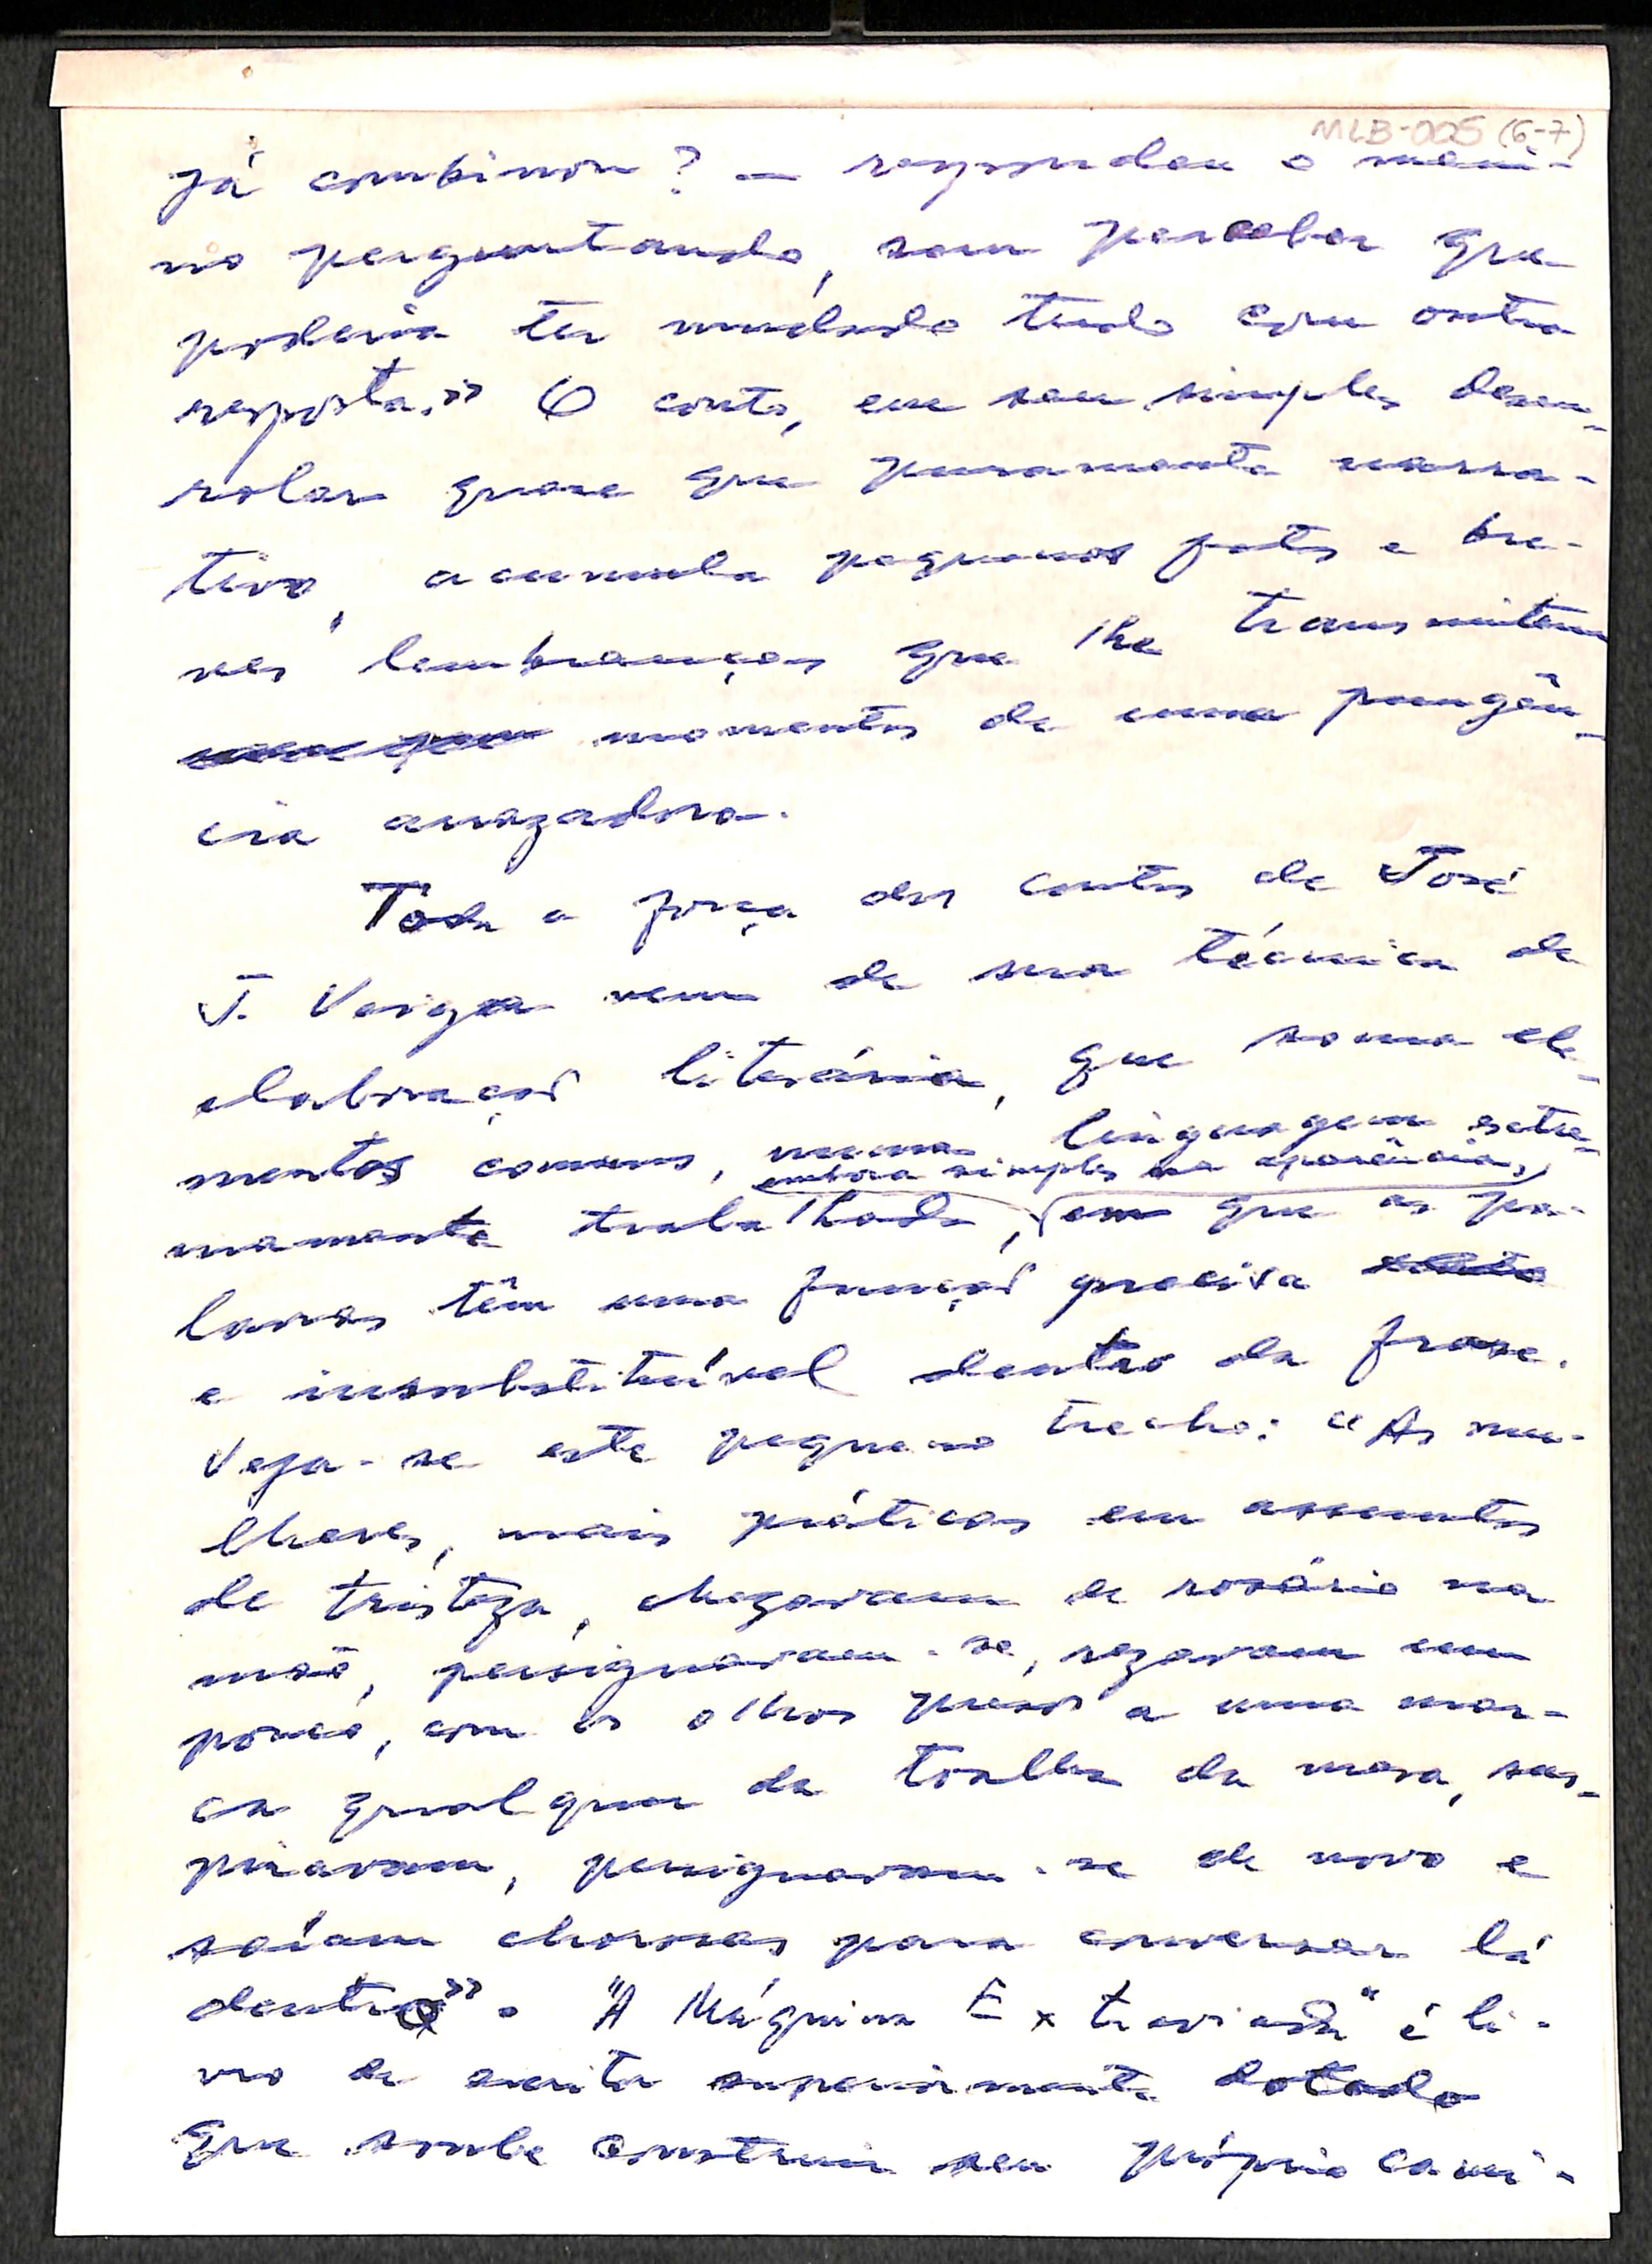 MLB-005 (6-7)
já combinou? — respondeu o meni-
no perguntando, sem perceber que
poderia ter mudado tudo com outra
resposta." O conto, em seu simples desen-
rolar quase que puramente narra-
tivo, acumula pequenos fatos e bre-
ves lembranças que lhe transmitem
momentos de uma pungên-
cia arrazadora.
Tôda a força dos contos de José
J. Veiga vem de sua técnica de
elaboração literária, que soma ele-
mentos comuns, numa linguagem extre-
embora simples na aparência,
mamente trabalhada, em que as pa-
lavras têm uma função precisa
e insubstituível dentro da frase.
Veja-se este pequeno trecho: "As mu-
lheres, mais práticas em assuntos
de tristeza, chegavam de rosário na
mão, persignavam-se, rezavam um
pouco, com os olhos presos a uma mar-
ca qualquer da toalha da mesa, sus-
piravam, persignavam-se de novo e
saíam chorosas para conversar lá
dentro". "A Máquina Extraviada" é li-
vro de escritor superiormente dotado
que soube construir seu próprio cami-